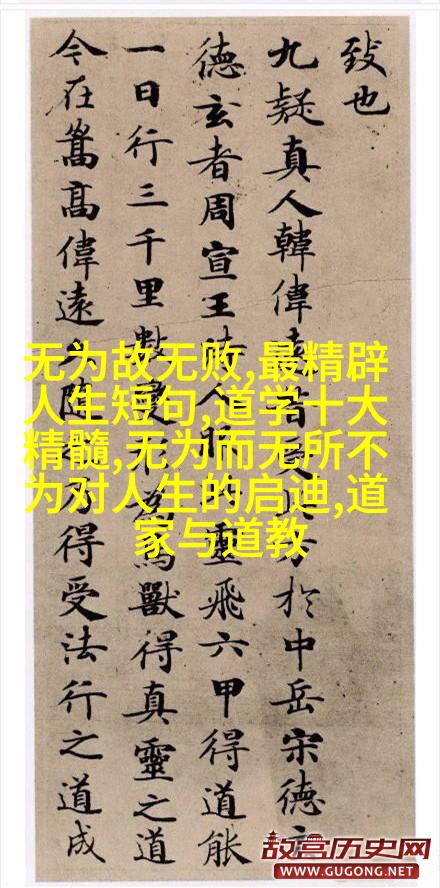 致也
九疑真人韓偉遠昔受此方於中岳宋德玄
德玄者周宣王時人服此靈飛六甲得道能
一日行三千里數變形為鳥獸得真靈之道
今在嵩高偉遠久隨之乃得受法行之道成
无为故无败,最精辟
人生短句,道学十大
精髓,无为而无所不
为对人生的启迪,道
家与道教
故宫历史网
WWW.GUGONG.NET